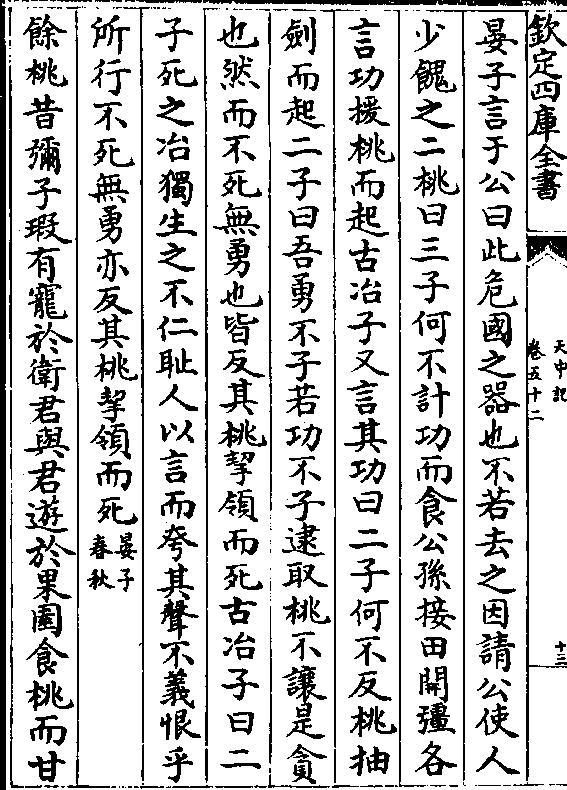 欽定四庫全書
天中記
卷五十二
十三
晏子言于公曰此危國之器也不若去之因請公使人
少餽之二桃曰三子何不計功而食公孫接田開疆各
言功援桃而起古冶子又言其功曰二子何不反桃抽
劍而起二子曰吾勇不子若功不子逮取桃不讓是貪
也然而不死無勇也皆反其桃挈領而死古冶子曰二
子死之冶獨生之不仁恥人以言而夸其聲不義恨乎
所行不死無勇亦反其桃挈領而死晏子春秋
餘桃昔彌子瑕有寵於衛君與君遊於果園食桃而甘